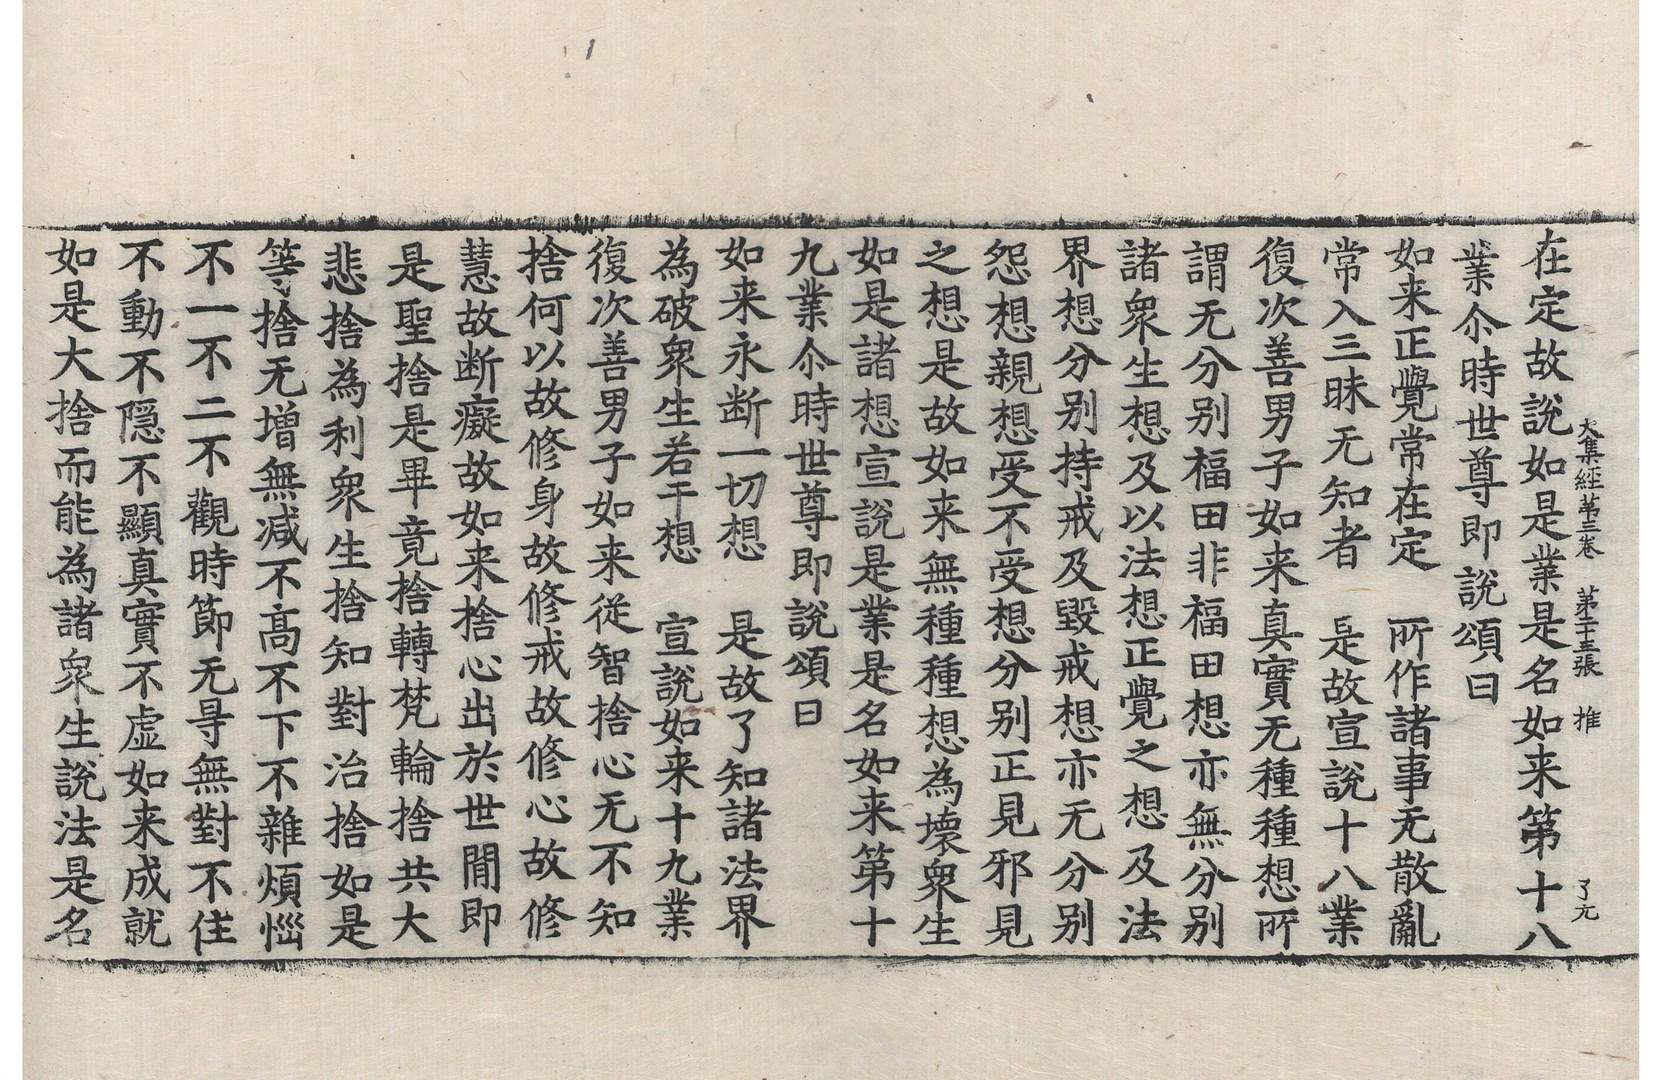 大集經第三卷　第二十三張　推　了元
在定故說如是業是名如来第十八
業尒時世尊即說頌曰
如来正覺常在定　所作諸事无散亂
常入三昧无知者　是故宣說十八業
復次善男子如来真實无種種想所
謂无分别福田非福田想亦無分别
諸衆生想及以法想正覺之想及法
界想分别持戒及毀戒想亦无分别
怨想親想受不受想分别正見邪見
之想是故如来無種種想為壞衆生
如是諸想宣說是業是名如来第十
九業尒時世尊即說頌曰
如来永断一切想　是故了知諸法界
為破衆生若干想　宣說如来十九業
復次善男子如来従智捨心无不知
捨何以故修身故修戒故修心故修
慧故断癡故如来捨心出於世間即
是聖捨是畢竟捨轉梵輪捨共大
悲捨為利衆生捨知對治捨如是
等捨无增無减不髙不下不雜煩惱
不一不二不觀時節无㝵無對不住
不動不隠不顯真實不虚如来成就
如是大捨而能為諸衆生說法是名